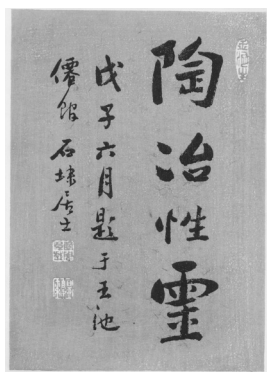 陶冶性靈
戊子六月題于玉池
僊館 石埭居士